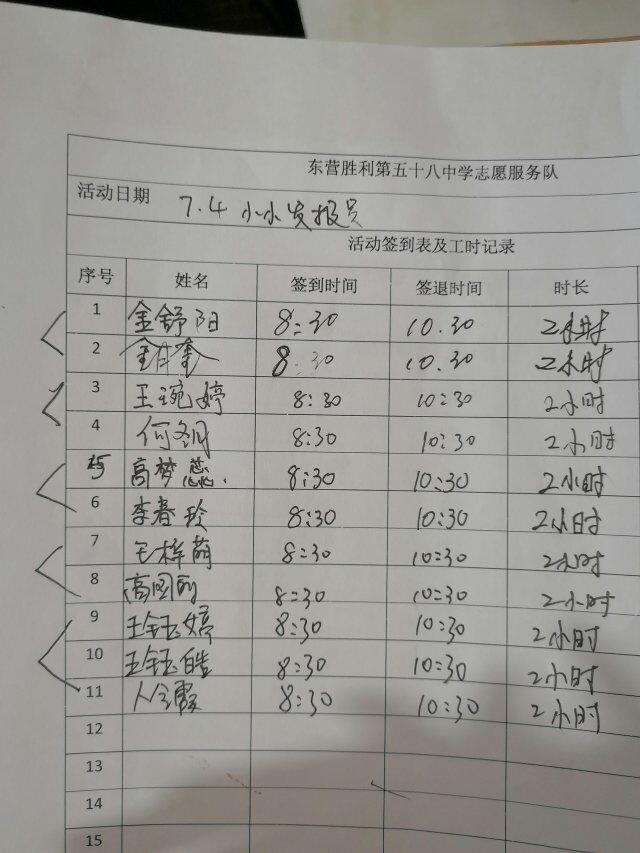 东营胜利第五十八中学志愿服务队
活动日期 7.4 小小发报员
活动签到表及工时记录
序号 姓名 签到时间 签退时间 时长
1 金舒阳 8:30 10.30 2小时
2 8:30 10.30 2小时
3 王琬婷 8:30 10:30 2小时
4 何冬月 8:30 10:30 2小时
5 高梦慈 8:30 10:30 2小时
6 李春玲 8:30 10:30 2小时
7 王梓萌 8:30 10:30 2小时
8 高图丽 8:30 10:30 2小时
9 王钰婷 8:30 10:30 2小时
10 王钰皓 8:30 10:30 2小时
11 8:30 10:30 2小时
12
13
14
15